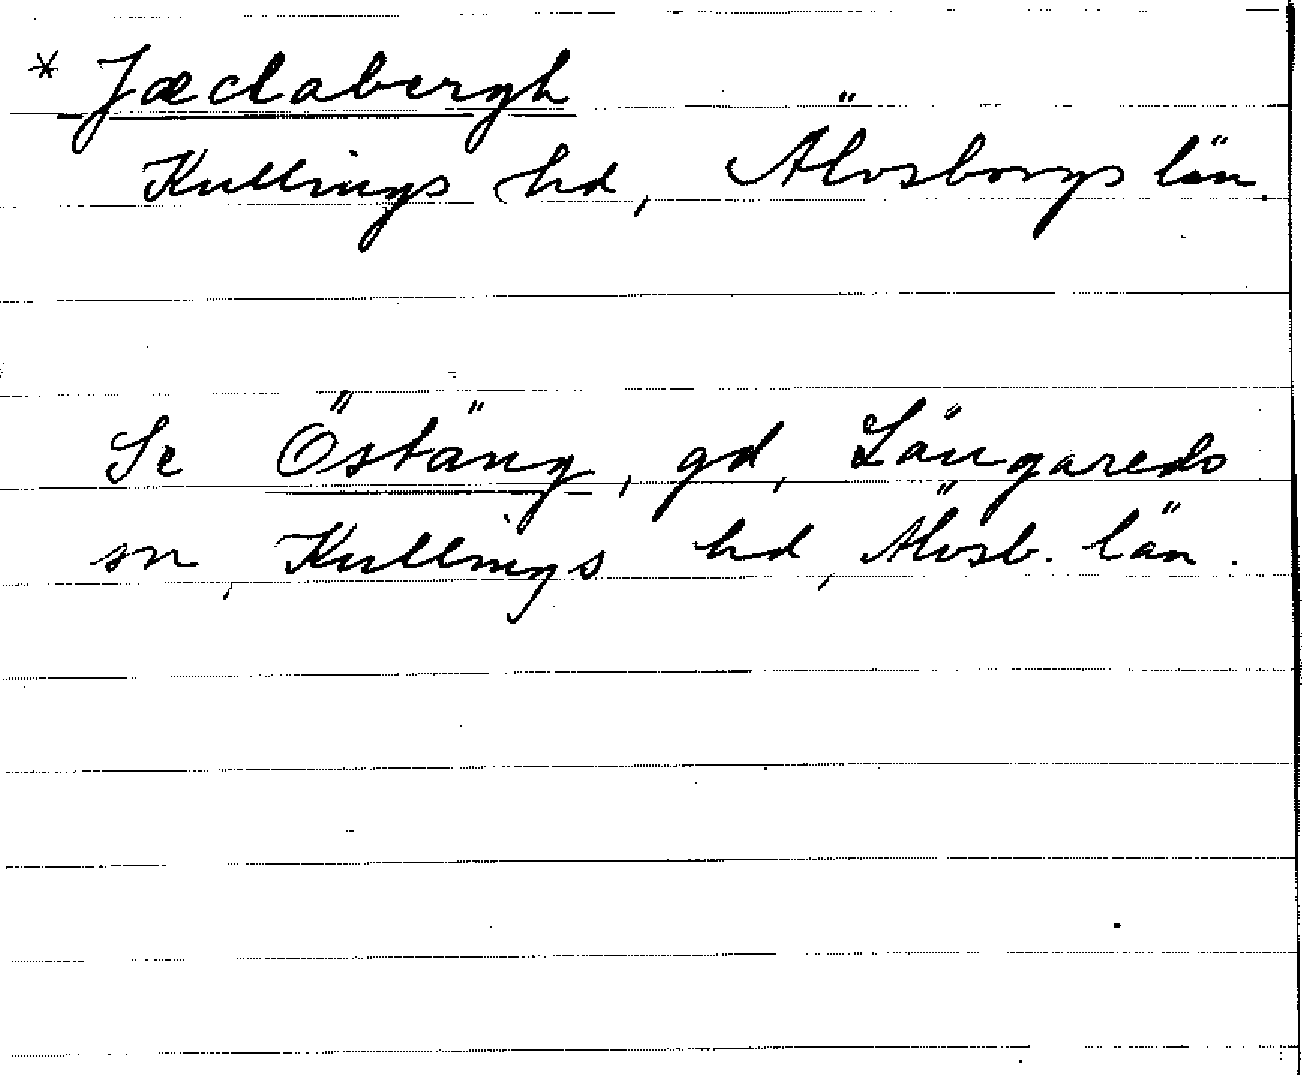 * Jæclabergh
Kullings hd, Älvsborgs län.
Se Östäng, gd, Långareds
sn, Kullings hd, Älvsb. län.